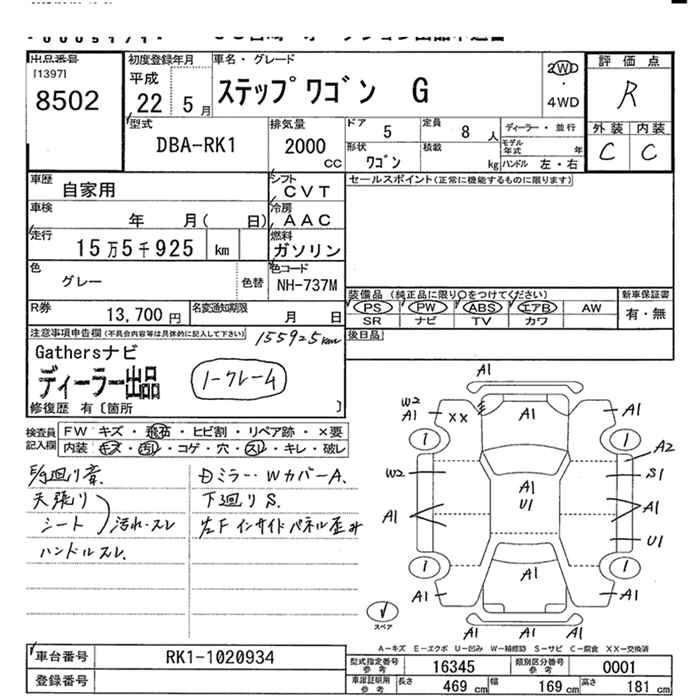 出品番号
[1397]
8502
初度登録年月
平成
22 5月
車名・グレード
ステップワゴン G
2WD
・
4WD
評価点
R
外装 内装
C C
型式
DBA-RK1
排気量
2000
CC
ドア 5
定員 8人
ディーラー・並行
モデル年式 年
形状 ワゴン
積載 kg
ハンドル 左・右
車歴 自家用
シフト CVT
セールスポイント(正常に機能するものに限ります)
車検 年 月( 日)
冷房 AAC
走行 15万5千925 km
燃料 ガソリン
色 グレー
色替
色コード NH-737M
装備品 (純正品に限り○をつけてください)
新車保証書
PS PW ABS エアB AW
SR ナビ TV カワ
有・無
R券 13,700 円
名変通知期限 月 日
後日品
注意事項申告欄(不具合内容等は具体的に記入して下さい)
155925km
Gathersナビ
ディーラー出品
ノークレーム
修復歴 有〔箇所 〕
検査員記入欄
FW キズ・飛石・ヒビ割・リペア跡・×要
内装 キズ・汚レ・コゲ・穴・スレ・キレ・破レ
天張り
シート 汚れ・スレ
ハンドルスレ
Dミラー・WカバーA.
下廻りS.
左Fインサイドパネル歪み
A1
W2
A1
XX
A1
1
1
A2
W2
S1
A1
U1
A1
A1
U1
1
1
A1
A1
A1
A1
スペア
A-キズ E-エクボ U-凹み W-補修跡 S-サビ C-腐食 XX-交換済
車台番号 RK1-1020934
登録番号
型式指定番号 参考 16345
類別区分番号 参考 0001
車庫証明用 参考
長さ 469 cm
幅 169 cm
高さ 181 cm